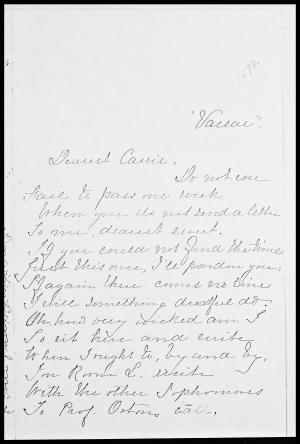 1872.
"Vassar".
Dearest Carrie,
Do not ever
Fail to pass one week
When you do not send a letter
To me, dearest sweet.
If you could not find the time
Just this once, I'll pardon you,
If again there comes no line
I will something dreadful do.
Oh, how very wicked am I
To sit here and write
When I ought to, by and by,
In Room L. write
With the other Sophomores
To Prof. Orton's